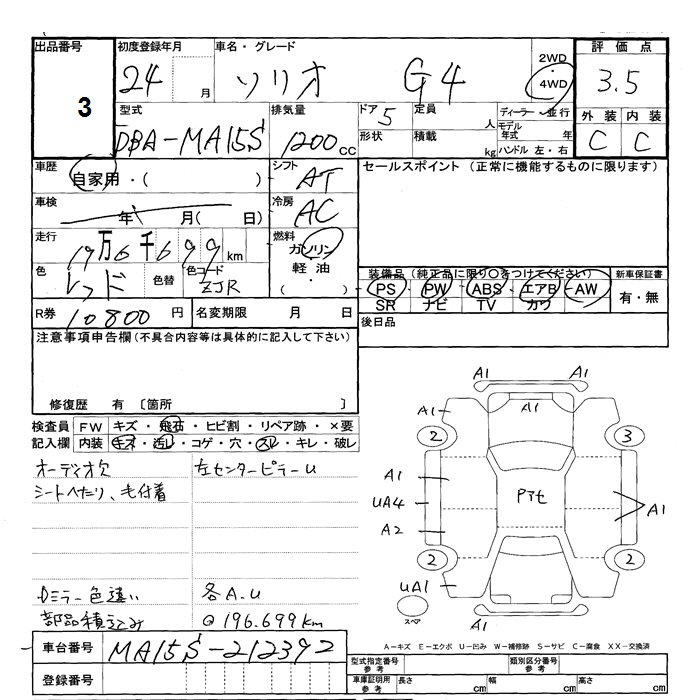 出品番号 初度登録年月 車名・グレード 2WD 評価点
3 24 月 ソリオ G4 4WD 3.5
型式 排気量 ドア 5 定員 人 ディーラー・並行 外装 内装
DBA-MA15S 1200 cc 形状 積載 kg モデル年式 年 C C
ハンドル 左・右
車歴 シフト セールスポイント (正常に機能するものに限ります)
自家用・( ) AT
車検 冷房
年 月( 日) AC
走行 燃料
19万6千699 km ガソリン
色 色替 色コード 軽油 装備品 (純正品に限り○をつけてください) 新車保証書
レッド ZJR ( ) PS PW ABS エアB AW 有・無
SR ナビ TV カワ
R券 10800 円 名変期限 月 日 後日品
注意事項申告欄(不具合内容等は具体的に記入して下さい)
修復歴 有 [箇所 ]
検査員 FW キズ・飛石・ヒビ割・リペア跡・×要
記入欄 内装 キズ・汚レ・コゲ・穴・スレ・キレ・破レ
オーディオ欠 左センターピラーU
シートヘたり、毛付着
Dミラー色違い 各A.U
部品積込み ◎196.699km
A1 A1
A1 A1
2 3
A1
UA4 Pアセ A1
A2
2 2
UA1
スペア A1 A1
A-キズ E-エクボ U-凹み W-補修跡 S-サビ C-腐食 XX-交換済
車台番号 MA15S-212392
登録番号
型式指定番号 参考 類別区分番号 参考
車庫証明用 参考 長さ cm 幅 cm 高さ cm